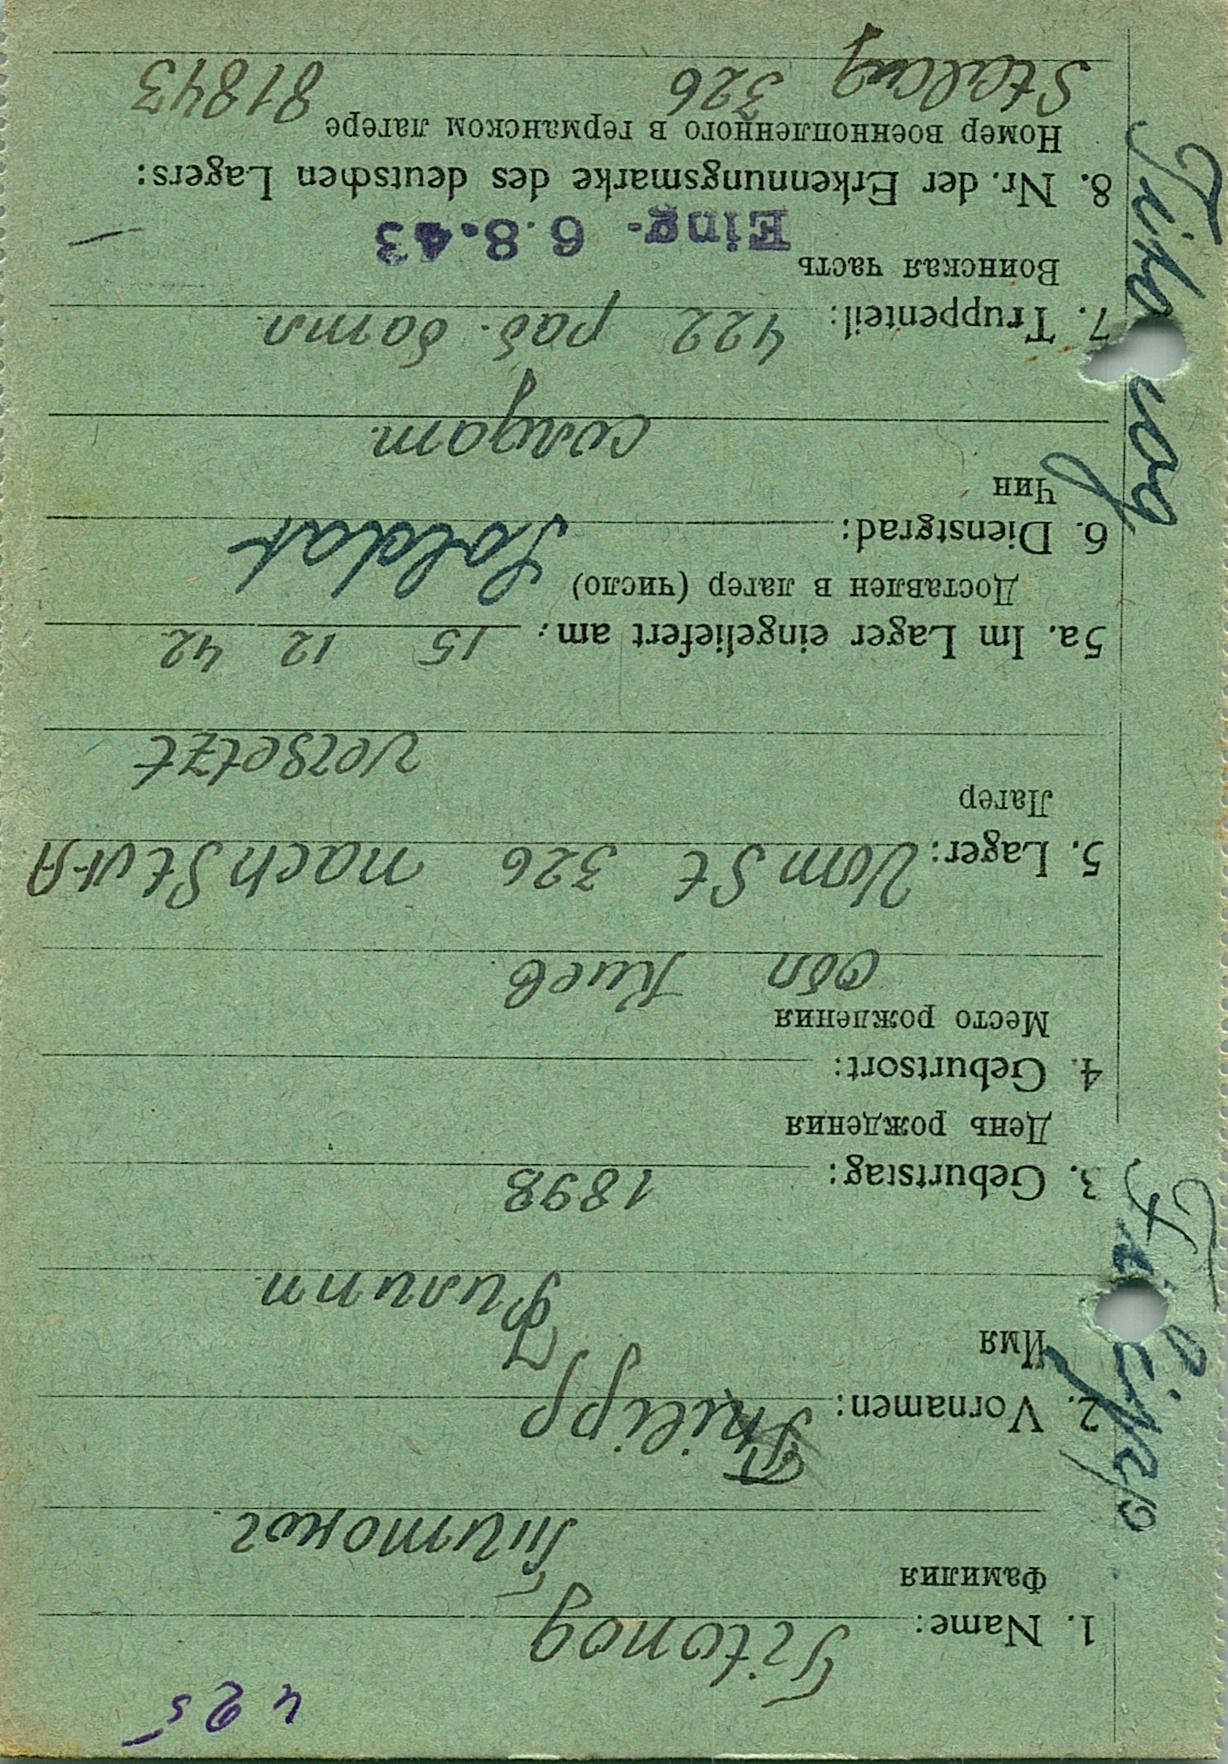 425
1. Name: Titonog
Фамилия
Титоног
2. Vornamen: Philipp
Имя
Филипп
3. Geburtstag: 1898
День рождения
4. Geburtsort:
Место рождения
обл Киев
5. Lager: Vom St 326 nach St VI-A
Лагер
versetzt
5a. Im Lager eingeliefert am: 15 12 42
Доставлен в лагер (число)
6. Dienstgrad: Soldat
Чин
солдат
7. Truppenteil: 422 раб. батл
Воинская часть
Eing. 6.8.43
8. Nr. der Erkennungsmarke des deutschen Lagers:
Номер военнопленного в германском лагере
Stalag 326 81843